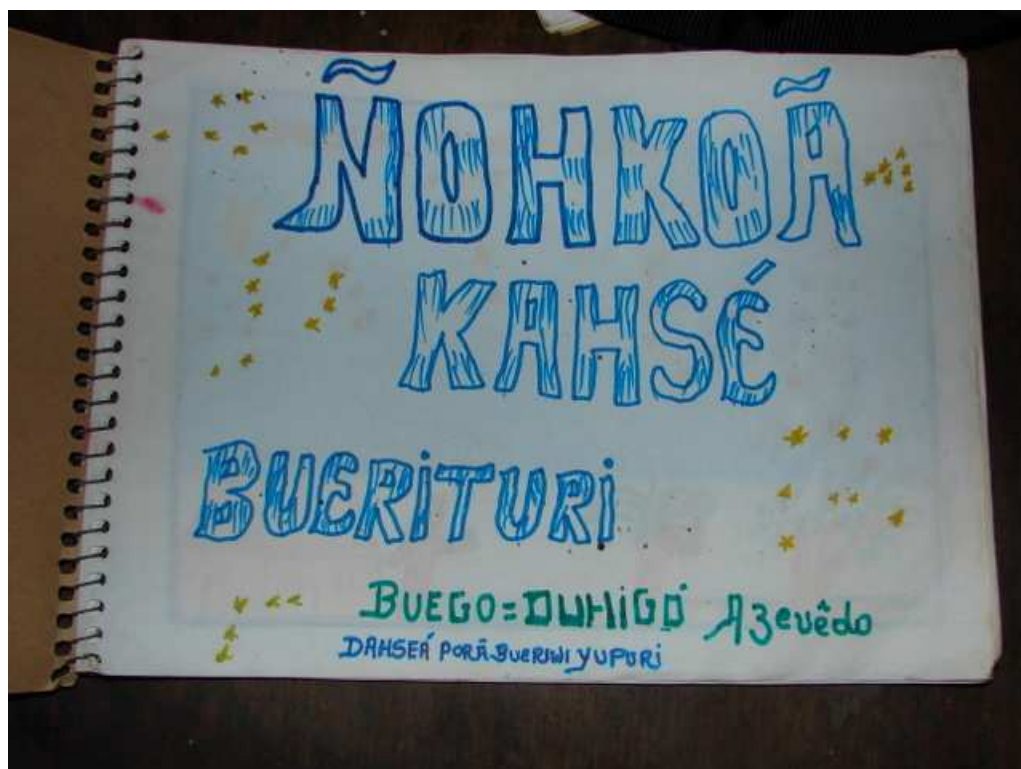 ÑOHKOÃ
KAHSÉ
BUERITURI
BUEGO=DUHIGÓ Azevêdo
DAHSEÁ PORÃ BUERIWI YUPURI